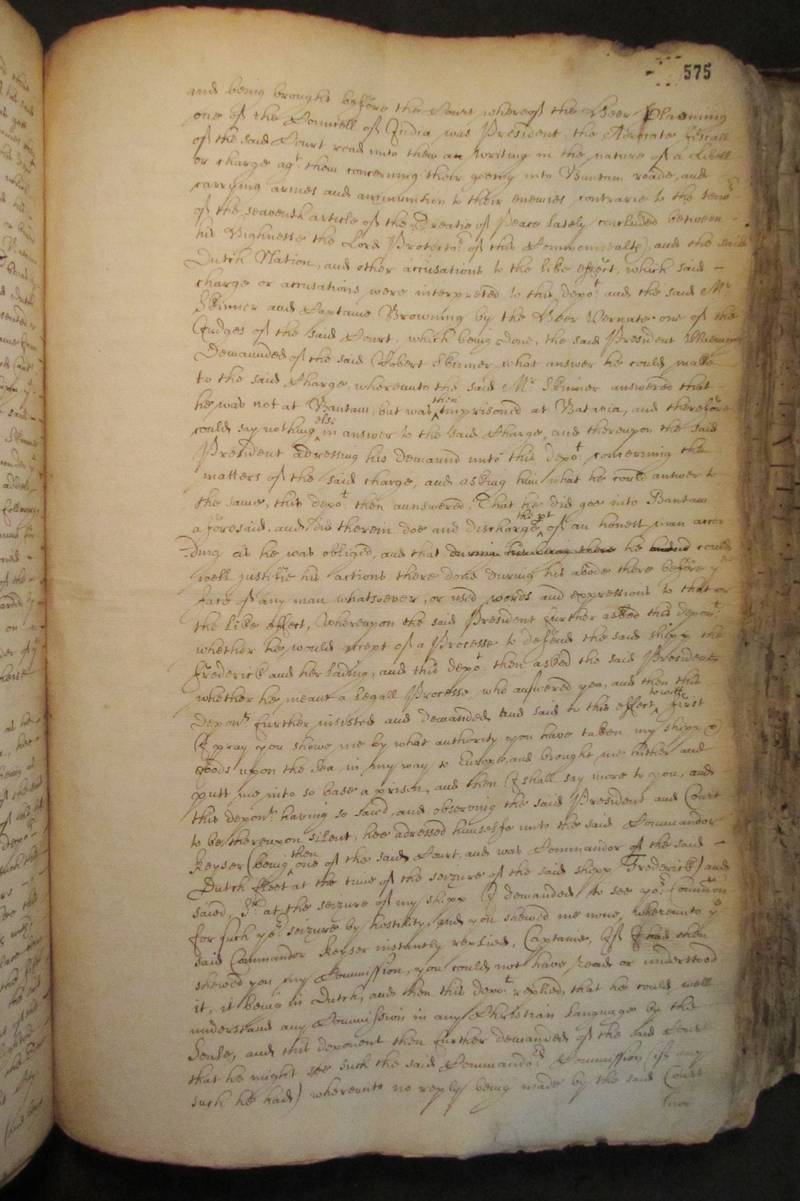 575
and being brought before the Court whereof the Heer
one of the Councell of India was President, the Advocate fiscall
of the said Court read unto them an writing in the nature of a libell
or charge agt them concerning their goeing into Bantam roade, and
carrying armes and ammunition to their enemies contrarie to the teno.r
of the seaventh article of the Treatie of Peace lately concluded between
his Highnesse the Lord Protector of this Commonwealth, and the said
Dutch Nation, and other accusations to the like effect, which said
charge or accusations were interpreted to this depot and the said Mr
Skinner and Captaine Browning by the Heer one of the
Judges of the said Court, which being done, the said President
Demaunded of the said Robert Skinner what answer he could make
to the said Charge, whereunto the said Mr Skinner answered that
he was not at Bantam, but was then imprisoned at Batavia, and therefore
could say nothing else in answer to the said Charge, and thereupon the said
President adressing his demaund unto this depot concerning the
matters of the said charge, and asking him what he could answer to
the same, this depot then aunswered, That hee did goe into Bantam
aforesaid, and did therein doe and discharge the pt of an honest man accor
ding as he was obliged, and that he could
well justifie his actions there done during his abode there before ye
face of any man whatsoever, or used words and expressions to that or
the like effect, Whereupon the said President further asked this depont
whether he would accept of a Processe to defend the said shipp the
Frederick and her lading, and this depot then asked the said President
whether he meant a legall Processe, who answered yea, and then this
depont further insisted and demanded and said to this effect, to witt first
I pray you shewe me by what authority you have taken my shipp &
goods upon the Sea in my way to Europe, and brought me hither and
putt me into so base a prison, and then I shall say more to you, and
this depont having so said, and observing the said President and Court
to be thereupon silent, hee adressed himselfe unto the said Commandor
Keyser (being then one of the said Court, and was Commandor of the said
Dutch fleet at the time of the seizure of the said shipp Frederick) and
saied, Sr. at the seizure of my shipp I demanded to see yor Commission
for such yor seizure by hostility, and you shewed me none, whereunto ye
said Commandor Keyser instantly replied, Captaine, If I had then
shewed you my Commission, you could not have read or understood
it, it being in Dutch, and then this depot replied, that he could well
understand any Commission in any Christian language by the
Seale, and this deponent then further demanded of the said Court
that he might see such the said Commandors Commission (if any
such he had) whereunto no reply being made by the said Court